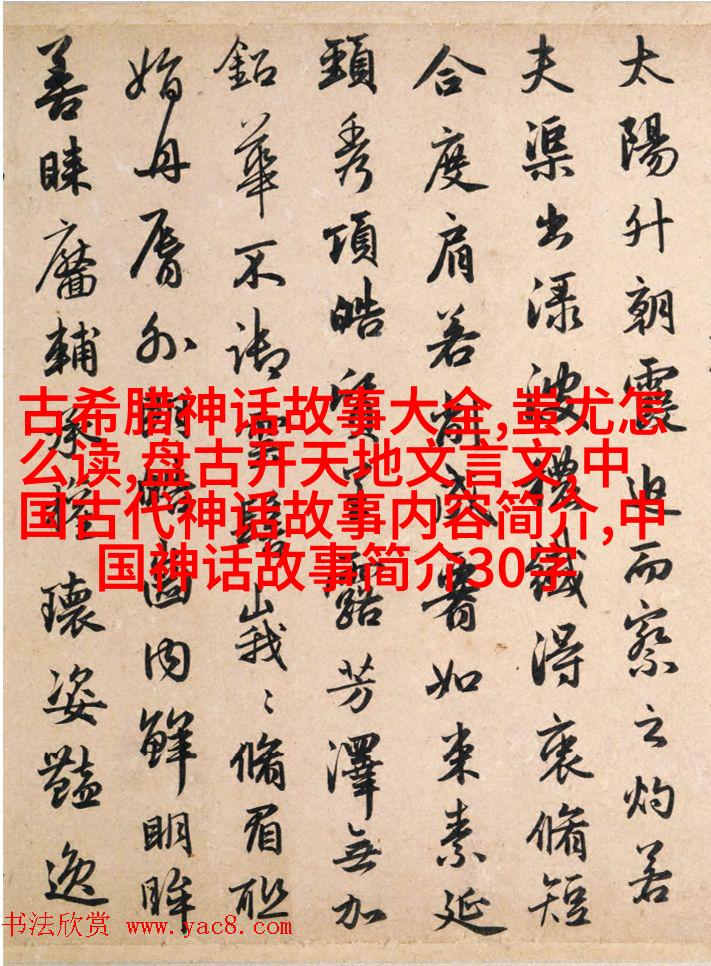 太陽升朝霞迫而察之灼若
夫渠出淥波襛纖得衷脩短
合度肩若削成如束素延
頸秀項皓質呈露芳澤無加
鉛華不御雲髻峩〻脩眉聯
娟丹脣外朗皓齒内鮮明眸
善睞靨輔承權瓌姿豔逸
古希腊神话故事大全,蚩尤怎
么读,盘古开天地文言文,中
国古代神话故事内容简介,中
国神话故事简介30字
书法欣赏 www.yac8.com